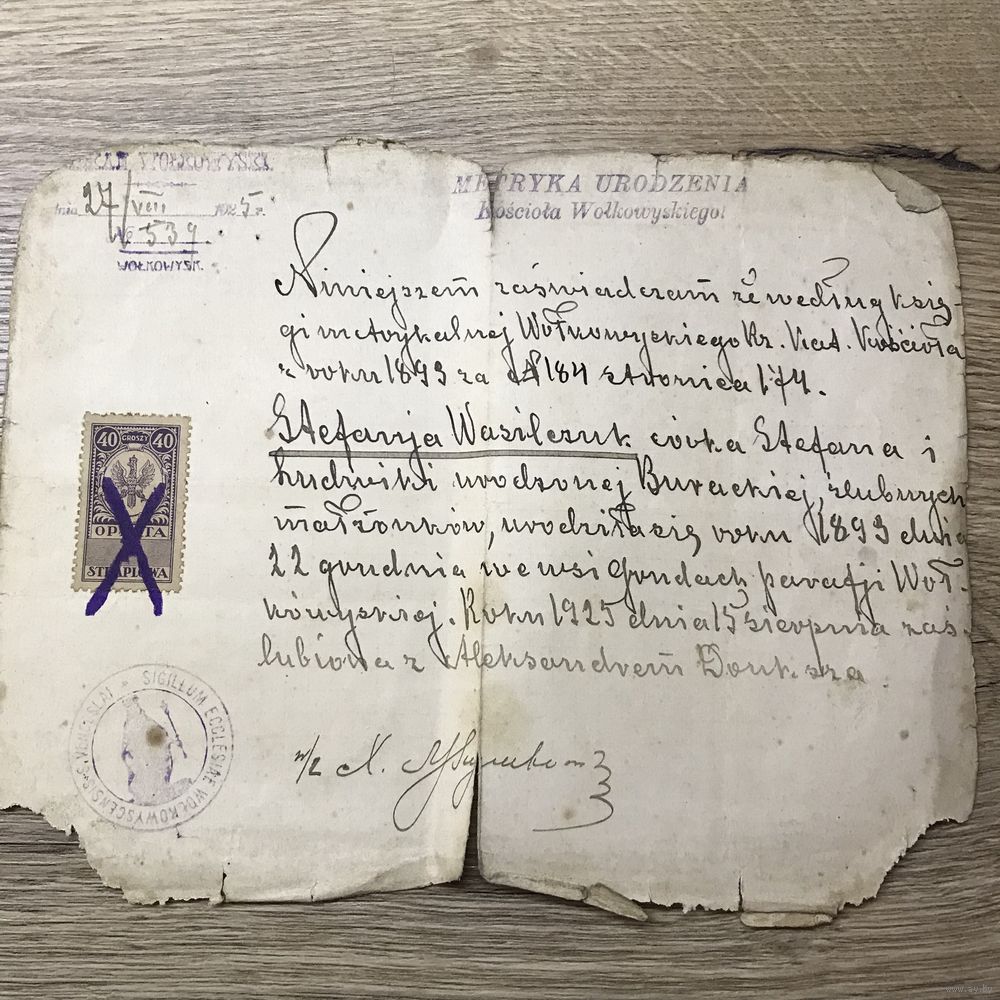 WOŁKOWYSKI
dnia 27/VIII 1925 r.
№ 539.
WOŁKOWYSK.
METRYKA URODZENIA
Kościoła Wołkowyskiego!
Niniejszem zaświadczam że według księ-
gi metrykalnej Wołkowyskiego Rz. Kat. Kościoła
z roku 1893 za № 184 stronica 174.
Stefanja Wasilczuk córka Stefana i
Ludwiki urodzonej Burackiej, ślubnych
małżonków, urodziła się roku 1893 dnia
22 grudnia we wsi Gondach parafji Woł-
kowyskiej. Roku 1925 dnia 15 sierpnia zaś-
lubiona z Aleksandrem
40 GROSZY 40
OPŁATA
STEMPLOWA
SIGILLUM ECCLESIAE WOŁKOWYSCENSIS S. VENCESLAI
X.
www.ay.by